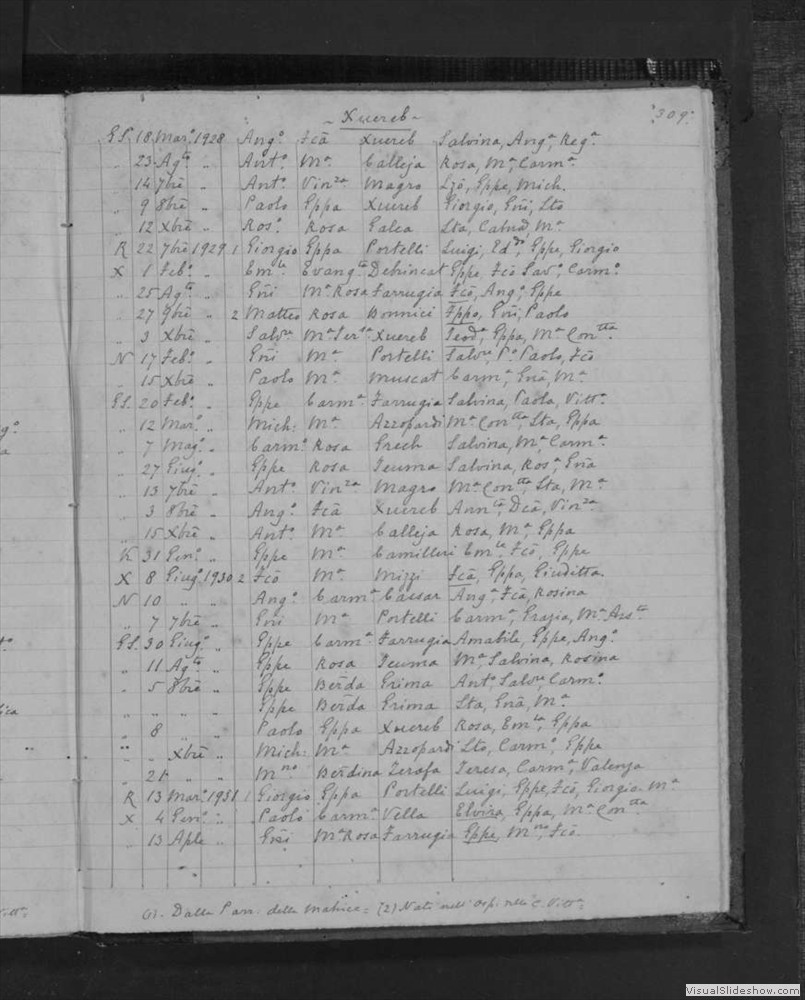 - Xuereb -
309.
G.S. 18 Mar.º 1928 Ang.º Fcā Xuereb Salvina, Ang.ª, Reg.ª
„ 23 Ag.to „ Ant.º M.ª Calleja Rosa, M.ª, Carm.ª
„ 14 7brē „ Ant.º Vin.za Magro Eppe, Mich.
„ 9 8brē „ Paolo Eppa Xuereb Giorgio, Gñi, Sto
„ 12 Xbrē „ Ros.º Rosa Galea Sta, M.ª
R 22 7brē 1929 1 Giorgio Eppa Portelli Luigi, Ed.do, Eppe, Giorgio
X 1 Feb.º „ Em.le Evang.ta Debrincat Eppe, Fcō, Sav.º, Carm.º
„ 25 Ag.to „ Gñi M.ª Rosa Farrugia Fcō, Ang.º, Eppe
„ 27 9brē „ 2 Matteo Rosa Bonnici Fppo, Gñi, Paolo
„ 3 Xbrē „ Salv.re M.ª Xuereb Teod.ª, Eppa, M.ª Con.tta
N 17 Feb.º „ Gñi M.ª Portelli Salv.re P.º Paolo, Fcō
„ 15 Xbrē „ Paolo M.ª Muscat Carm.ª, Gñā, M.ª
G.S. 20 Feb.º „ Eppe Carm.ª Farrugia Salvina, Paola, Vitt.ª
„ 12 Mar.º „ Mich: M.ª Azzopardi M.ª Con.tta, Sta, Eppa
„ 7 Mag.º „ Carm.º Rosa Grech Salvina, M.ª, Carm.ª
„ 27 Giug.º „ Eppe Rosa Teuma Salvina, Ros.ª, Gñā
„ 13 7brē „ Ant.º Vin.za Magro M.ª Con.tta, Sta, M.ª
„ 3 8brē „ Ang.º Fcā Xuereb Ann.ta, Dcā, Vin.za
„ 15 Xbrē „ Ant.º M.ª Calleja Rosa, M.ª, Eppa
K 31 Gen.º „ Eppe M.ª Camilleri Em.le, Fcō, Eppe
X 8 Giug.º 1930 2 Fcō M.ª Mizzi Fcā, Eppa, Giuditta.
N 10 „ „ Ang.º Carm.ª Caesar Ang.ª, Fcā, Rosina
„ 7 7brē „ Gñi M.ª Portelli Carm.ª, Grazia, M.ª Ass.ta
G.S. 30 Giug.º „ Eppe Carm.ª Farrugia Amabile, Eppe, Ang.º
„ 11 Ag.to „ Eppe Rosa Teuma M.ª, Salvina, Rosina
„ 5 8brē „ Eppe Berdā Grima Ant.º Salv.re, Carm.º
„ „ „ „ Eppe Berdā Grima Sta, Gñā, M.ª
„ 8 „ „ Paolo Eppa Xuereb Rosa, Em.la, Eppa
„ „ Xbrē „ Mich: M.ª Azzopardi Sto, Carm.º, Eppe
„ 21 „ „ M.no Berdina Zerafa Teresa, Carm.ª, Valenza
R 13 Mar.º 1931 1 Giorgio Eppa Portelli Luigi, Eppe, Fcō, Giorgio M.ª
X 4 Gen.º „ Paolo Carm.ª Vella Elvira, Eppa, M.ª Con.tta
„ 13 Aple „ Gñi M.ª Rosa Farrugia Eppe, M.no, Fcō
(1). Dalla Parr. della Matrice = (2) Nati nell' Osp. Vitt.ª
VisualSlideshow.com